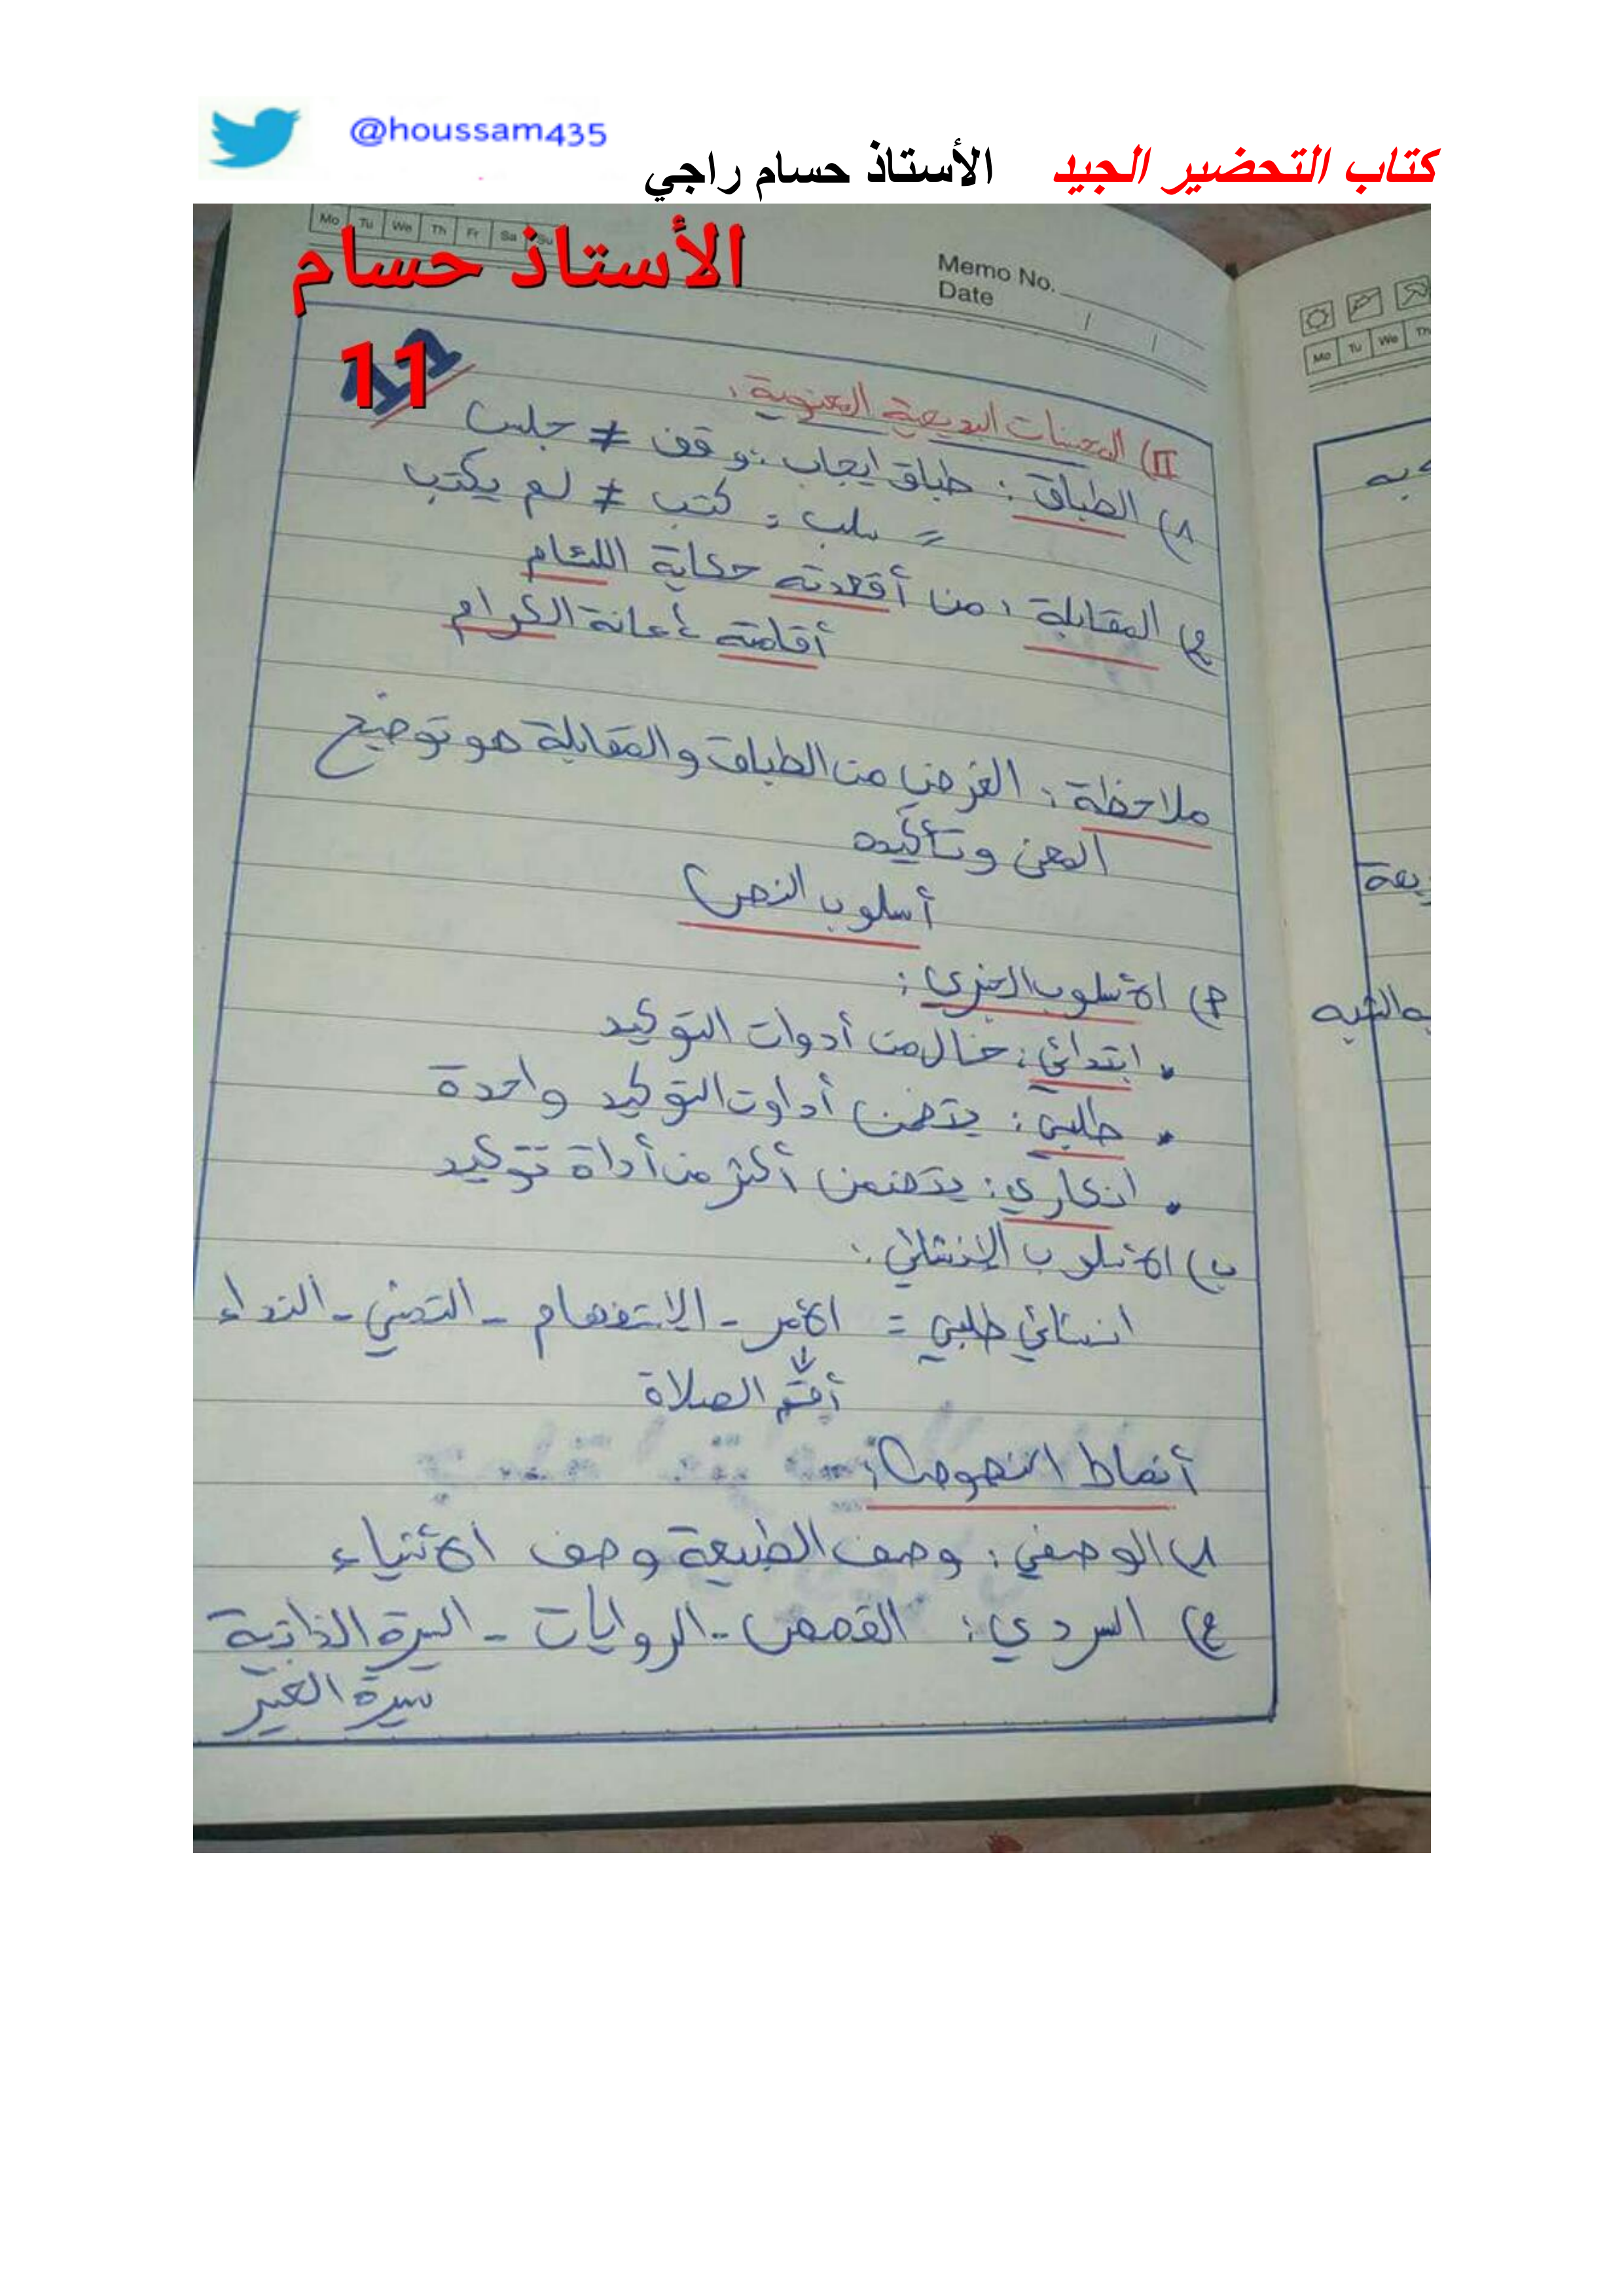 @houssam435
كتاب التحضير الجيد الأستاذ حسام راجي
Mo Tu We Th Fr Sa Su
الأستاذ حسام
Memo No.
Date
11
II) المحسنات البديعية المعنوية:
1) الطباق: طباق ايجاب: وقف ≠ جلس
= سلب = كتب ≠ لم يكتب
2) المقابلة: من أقعدته حكاية اللئام
أقامته إعانة الكرام
ملاحظة: الغرض من الطباق والمقابلة هو توضيح
المعنى وتأكيده
أسلوب النص
أ) الأسلوب الخبري:
• ابتدائي: خال من أدوات التوكيد
• طلبي: يتضمن أداوت التوكيد واحدة
• انكاري: يتضمن أكثر من أداة توكيد
ب) الأسلوب الإنشائي:
انشائي طلبي = الأمر - الاستفهام - التمني - النداء
↓
أقم الصلاة
أنماط النصوص:
1) الوصفي: وصف الطبيعة وصف الأشياء
2) السردي: القصص - الروايات - السيرة الذاتية
سيرة الغير
Mo Tu We Th
به